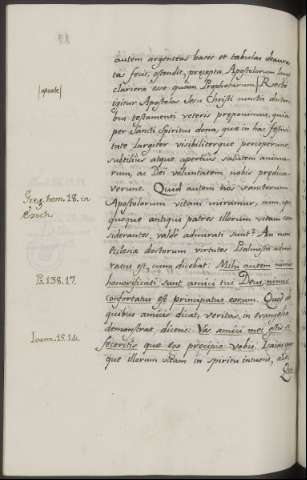 autem argenteas bases et tabulas deaura-
tas fecit, ostendit, præcepta Apostolorum longe
clariora esse quam Prophetarum. Recte
igitur Apostolos Jesu Christi cunctis doctori-
bus testamenti veteris præponimus, quia
per Sancti Spiritus dona, quæ in hac festivi-
tate largiter visibiliterque perceperunt,
subtilius atque apertius salutem anima-
rum, ac Dei voluntatem nobis prædica-
verunt. Quid autem nos sanctorum
Apostolorum vitam miramur, cum ipsi
quoque antiqui patres illorum vitam con-
siderantes, valde admirati sunt? An non
Ecclesiæ doctorum virtutes Psalmista admi-
ratus est, cum dicebat: Mihi autem nimis
honorificati sunt amici tui Deus, nimis
confortatus est principatus eorum. Quid
quibus amicis dicat, veritas in evangelio
demonstrat, dicens: Vos amici mei estis si
feceritis quæ ego præcipio vobis. Isaias quo-
que illorum vitam in spiritu intuens, 
(aperte)
Greg. hom. 18. in
Ezech.
Ps. 138. 17.
Joann. 15. 14.